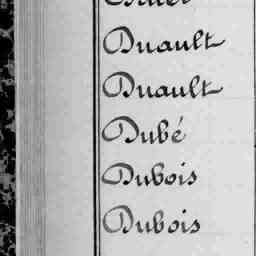 Duault
Duault
Dubé
Dubois
Dubois